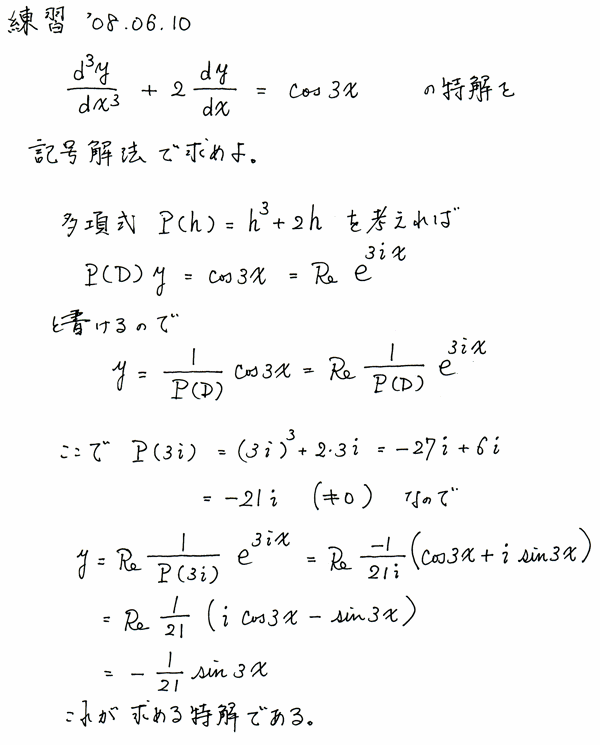 練習 '08.06.10
d³y/dx³ + 2 dy/dx = cos 3x の特解を
記号解法で求めよ。
多項式 P(h) = h³ + 2h を考えれば
P(D) y = cos 3x = Re e^{3ix}
と書けるので
y = 1/P(D) cos 3x = Re 1/P(D) e^{3ix}
ここで P(3i) = (3i)³ + 2·3i = -27i + 6i
= -21i (≠0) なので
y = Re 1/P(3i) e^{3ix} = Re -1/21i (cos 3x + i sin 3x)
= Re 1/21 (i cos 3x - sin 3x)
= - 1/21 sin 3x
これが求める特解である。